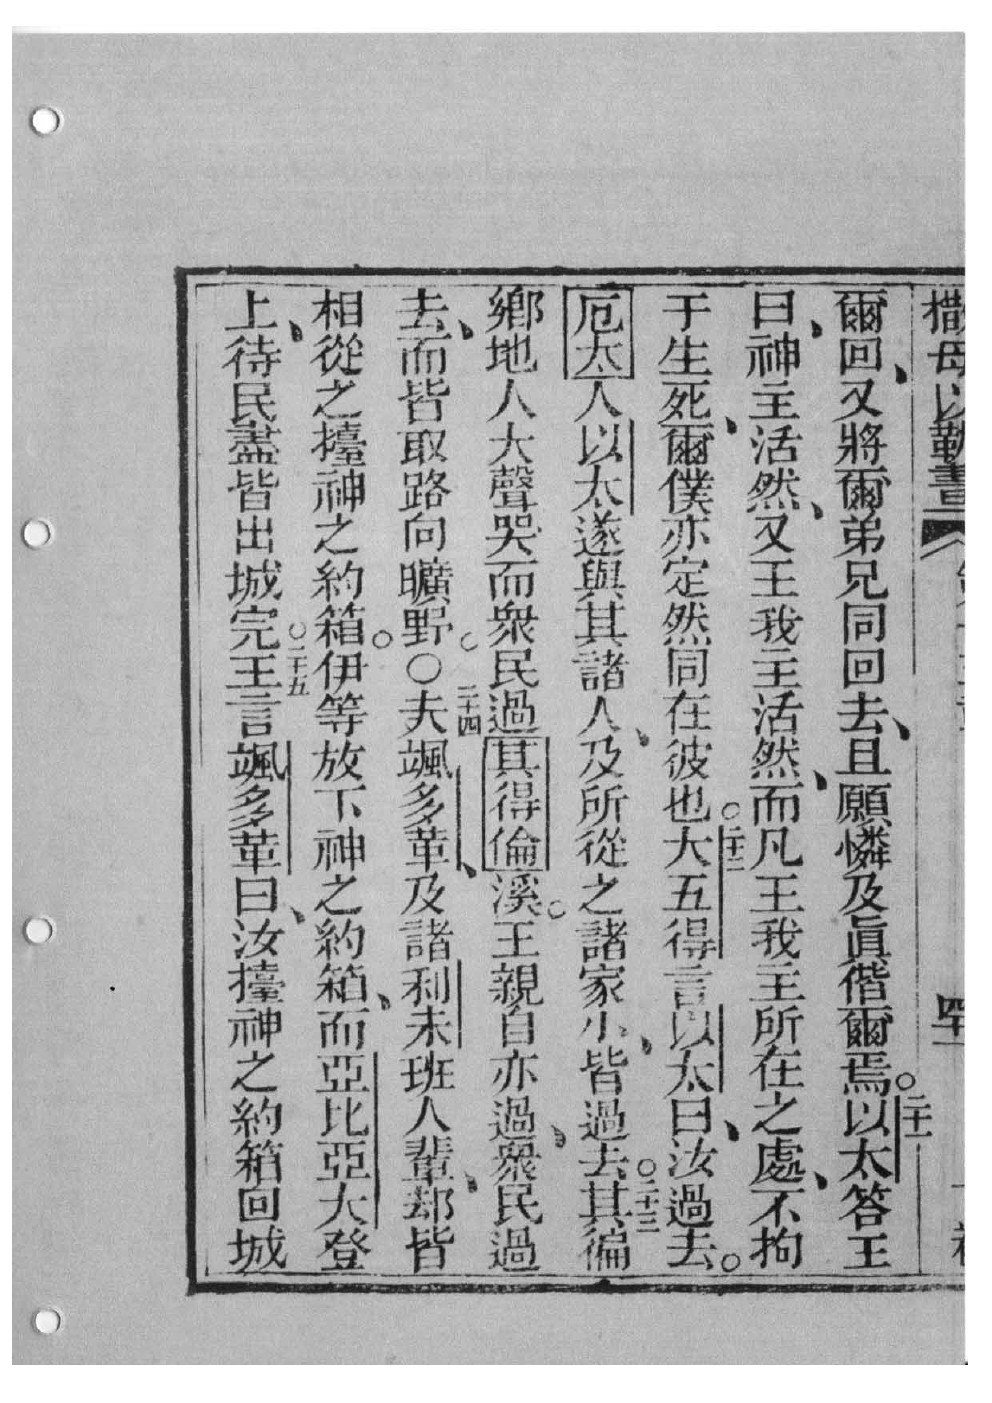 撒母以勒書
爾回、又將爾弟兄同回去、且願憐及眞偕爾焉。二十一以太答王
曰、神主活然、又王我主活然、而凡王我主所在之處、不拘
于生死、爾僕亦定然同在彼也。二十二大五得言以太曰、汝過去。
厄太人以太遂與其諸人、及所從之諸家小、皆過去。二十三其徧
鄉地人大聲哭而衆民過其得倫溪。王親自亦過、衆民過
去、而皆取路向曠野。○二十四夫颯多革、及諸利未班人輩、却皆
相從之擡神之約箱。伊等放下神之約箱、而亞比亞大登
上、待民盡皆出城完。二十五王言颯多革曰、汝擡神之約箱回城